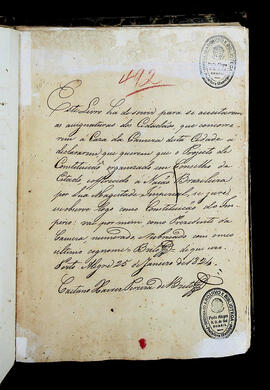 442
Este Livro ha de servir para se aceitarem
as assignaturas dos Cidadãos, que concorre
rem á Caza da Camera desta Cidade a
declararem que querem que o Projecto de
Constituição organizado em Conselho de
Estado, e offerecido á Nação Brasileira
por Sua Magestade Imperial, se jure
logo como Constituição do Im-
perio: vai por mim como Presidente da
Camera numerado, e rubricado com o meu
ultimo cognome de que uso.
Porto Alegre 25 de Janeiro de 1824.
Caetano Xavier Pereira de